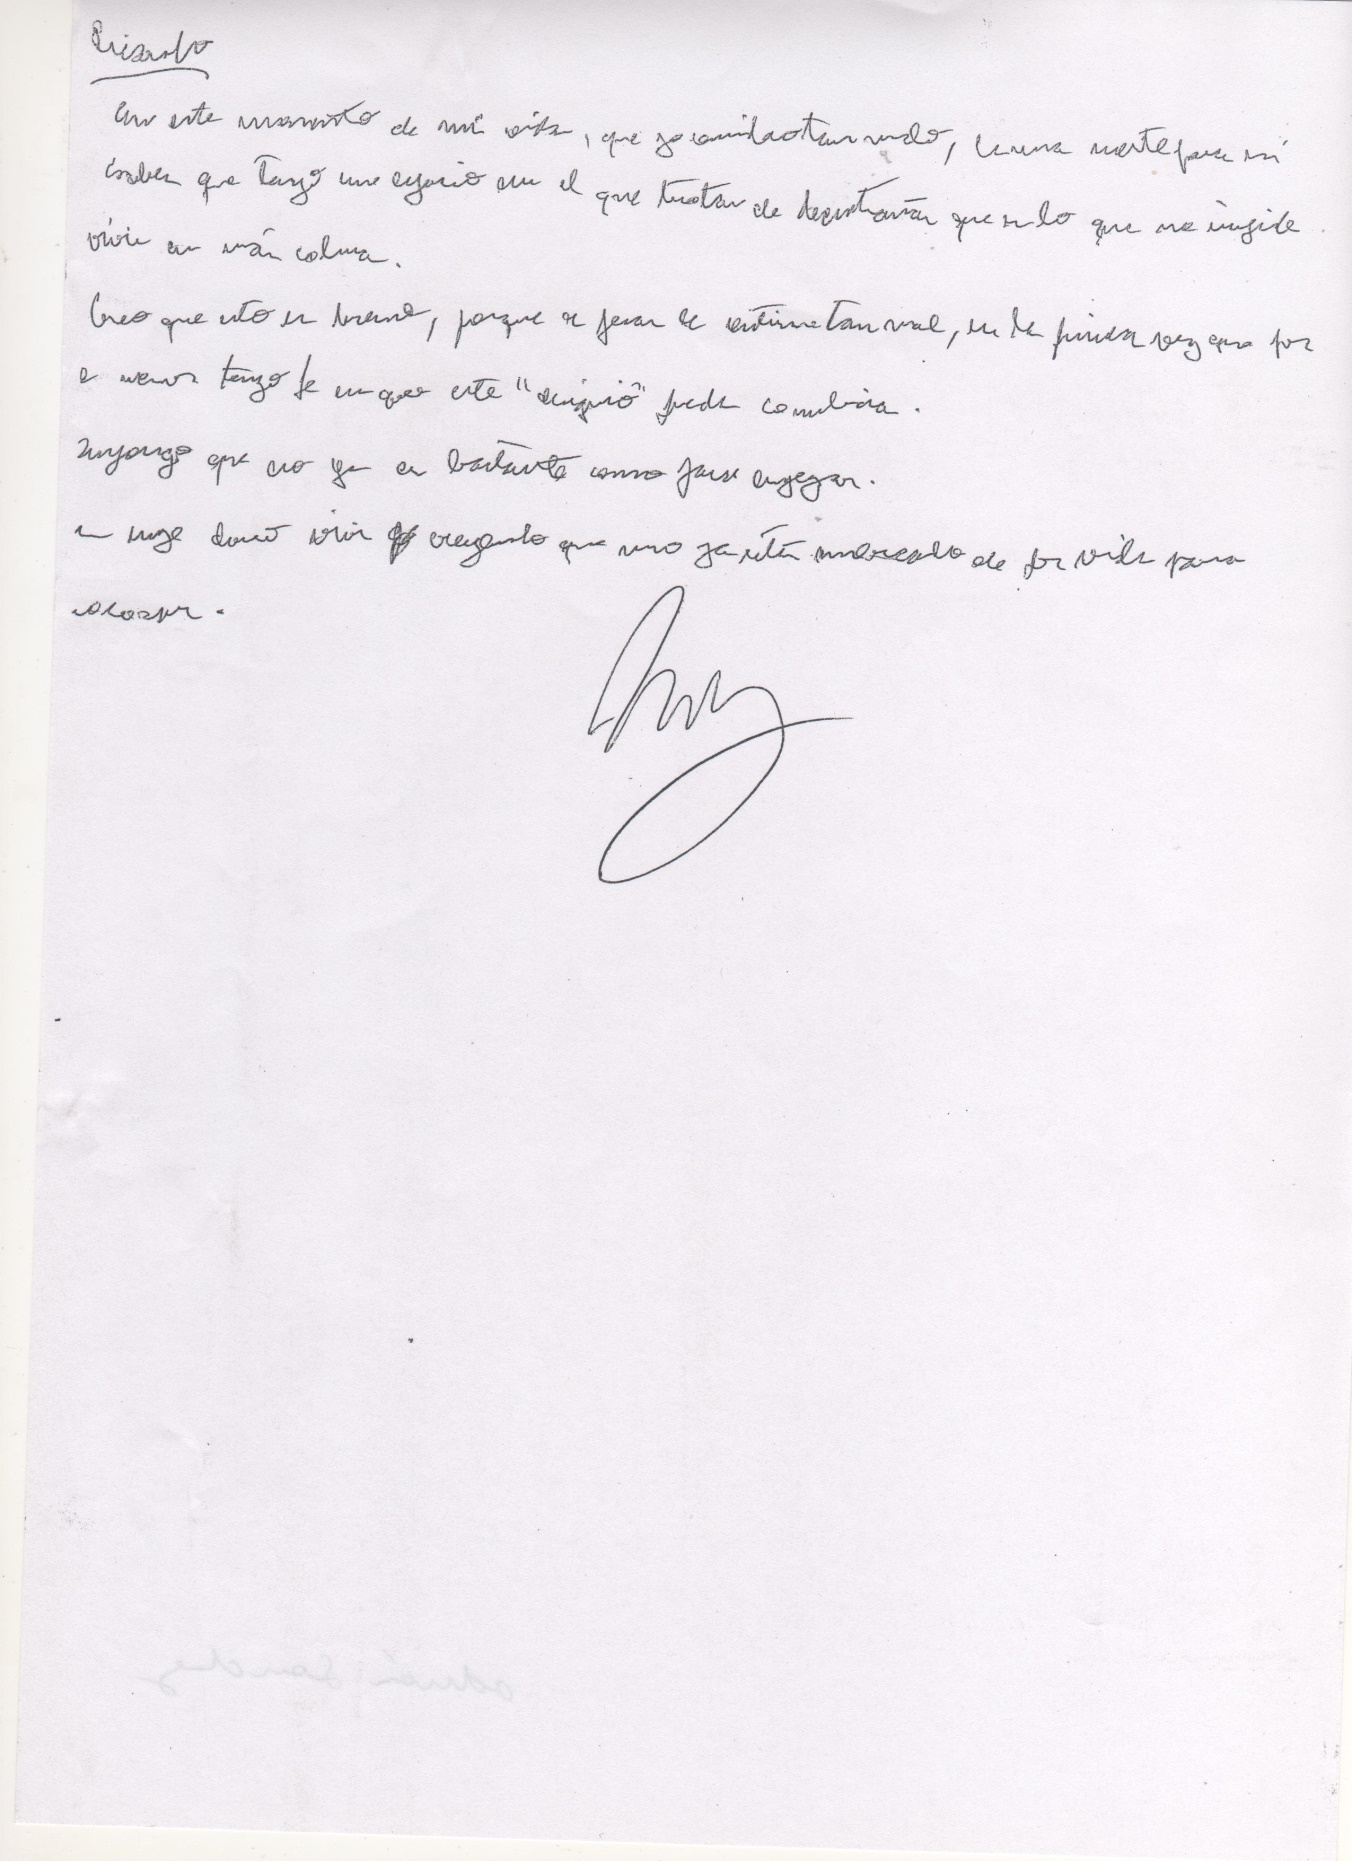 En este momento de mi vida, que yo considero tan malo, es una suerte para mi
saber que tengo un espacio en el que tratar de desentrañar que es lo que me impide
vivir en más calma.
Creo que esto es bueno, porque a pesar de sentirme tan mal, es la primera vez que por
lo menos tengo fe en que este " " pueda cambiar.
Supongo que eso ya es bastante como para empezar.
es muy duro vivir creyendo que uno ya está marcado de por vida para